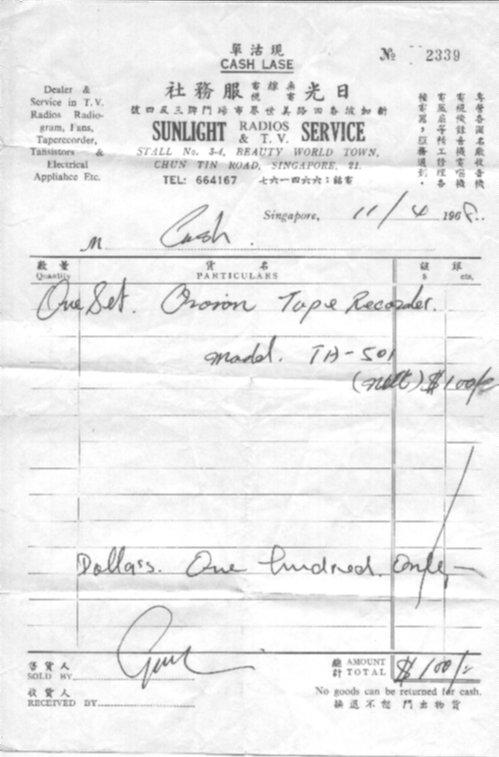 單沽現
CASH LASE
№ 2339
Dealer &
Service in T.V.
Radios Radio-
gram, Fans,
Taperecorder,
Tansistors &
Electrical
Appliance Etc.
社務服視電線無光日
號四及三牌門場市界世美路四坡加新
SUNLIGHT RADIOS & T. V. SERVICE
STALL No. 3-4, BEAUTY WORLD TOWN,
CHUN TIN ROAD, SINGAPORE, 21.
TEL: 664167 七六一四六六：話電
Singapore, 11/4 1968.
M Cash.
數量 貨名 銀
Quantity PARTICULARS $ cts.
One Set. Tape Recorder.
Model. TH-501
(nett) $100/-
Dollars. One hundred. Only,-
售貨人
SOLD BY
總計 AMOUNT TOTAL $100/-
收貨人
RECEIVED BY
No goods can be returned for cash.
換退不恕門出物貨